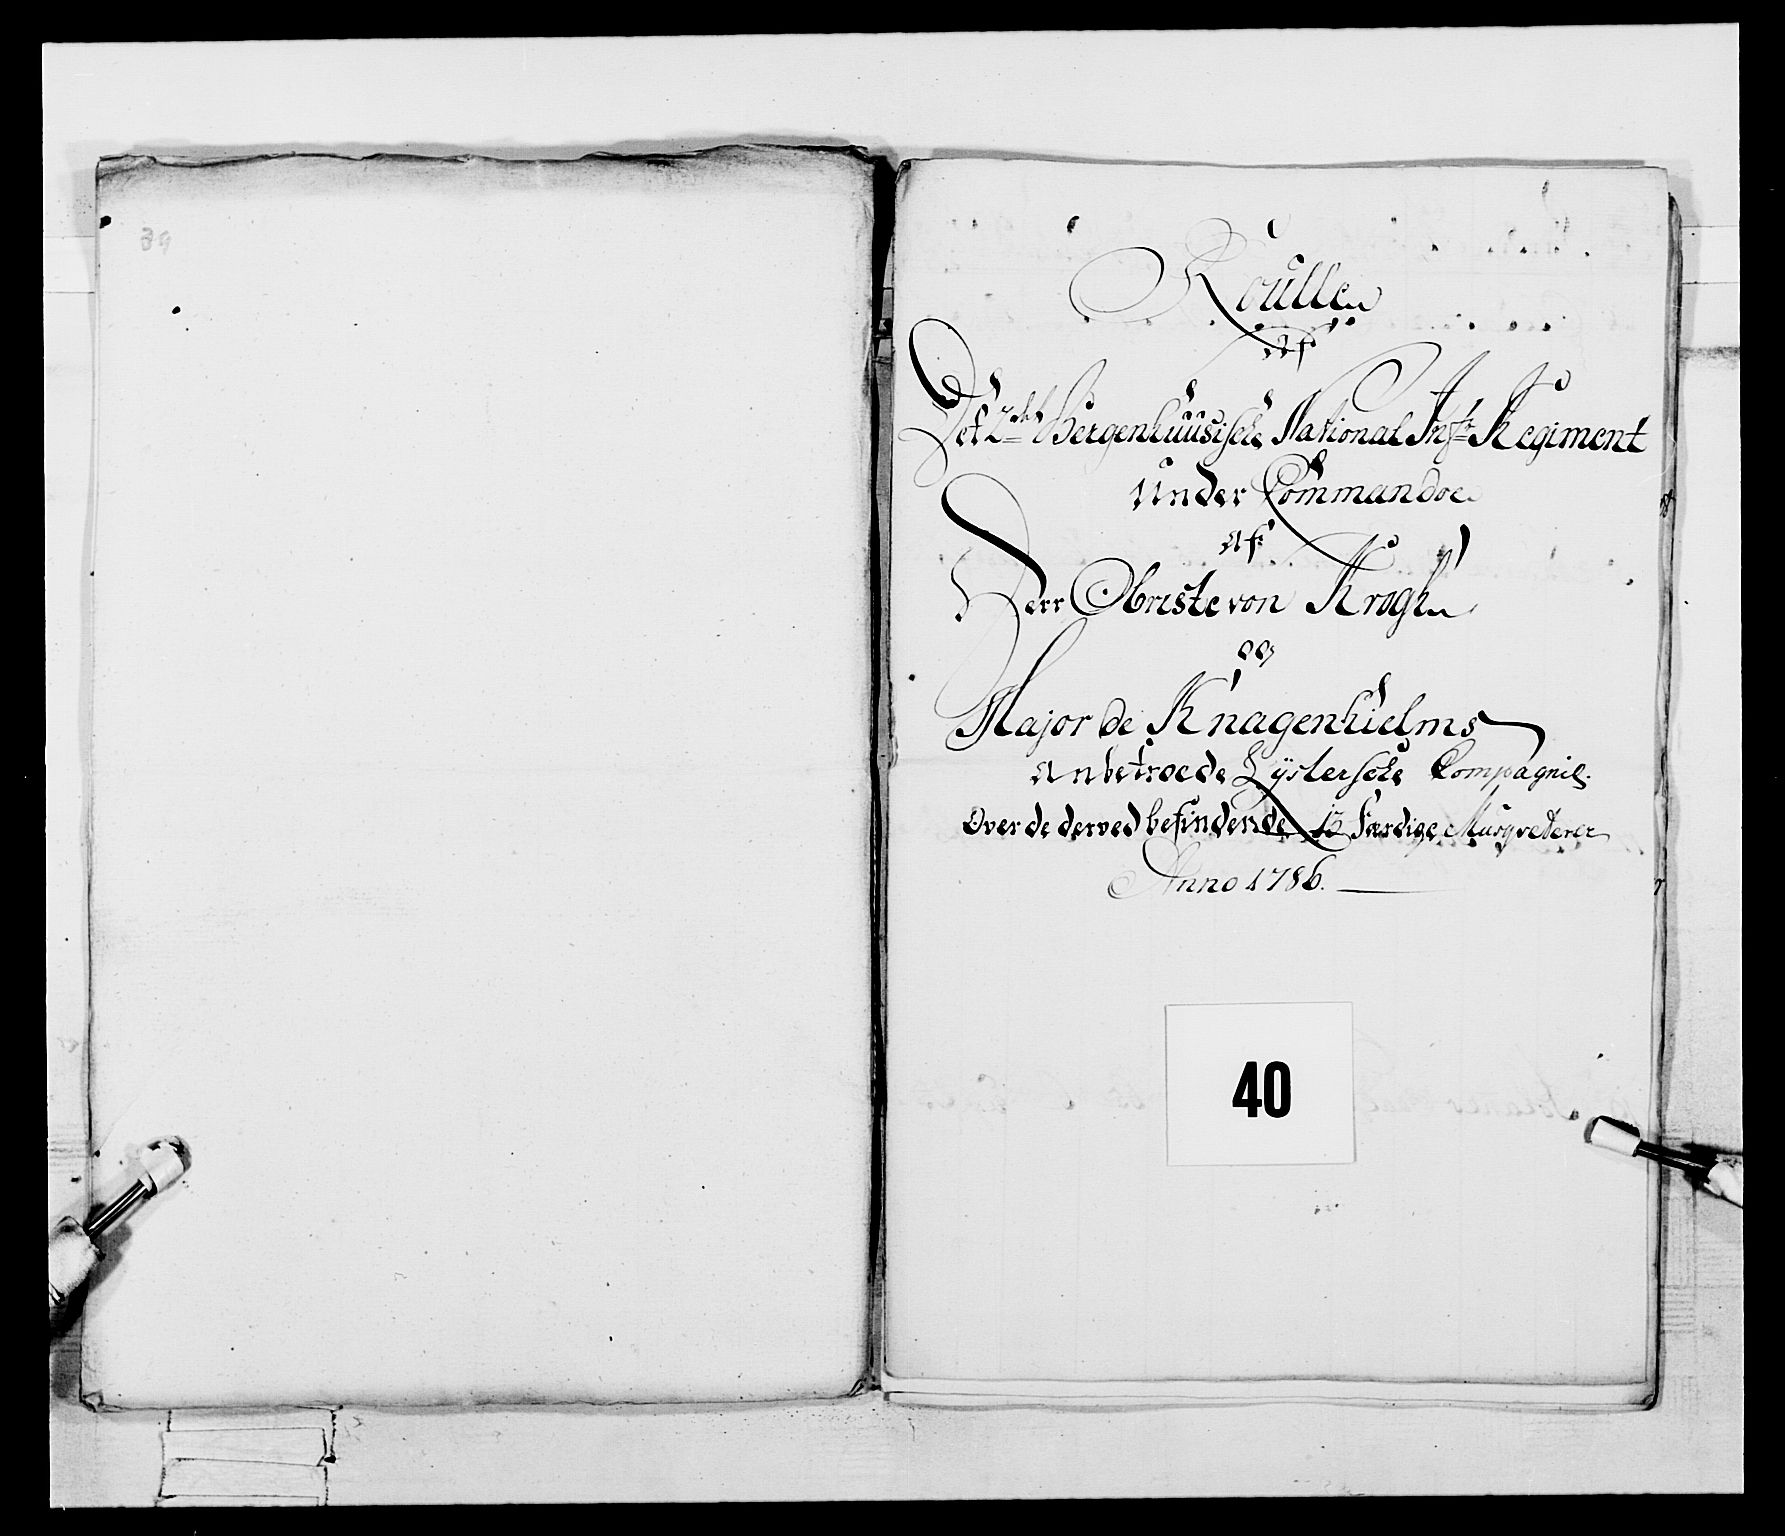 Roullen
Af
Det 2det Bergenhuusische National Inf: Regiment
Under Commandoe
Af
Herr Obriste von Krogh
og
Major de Knagenhielms
Anbetroede Lysterske Compagnie.
Over de derved befindende færdige Musqveterer
Anno 1786.
40